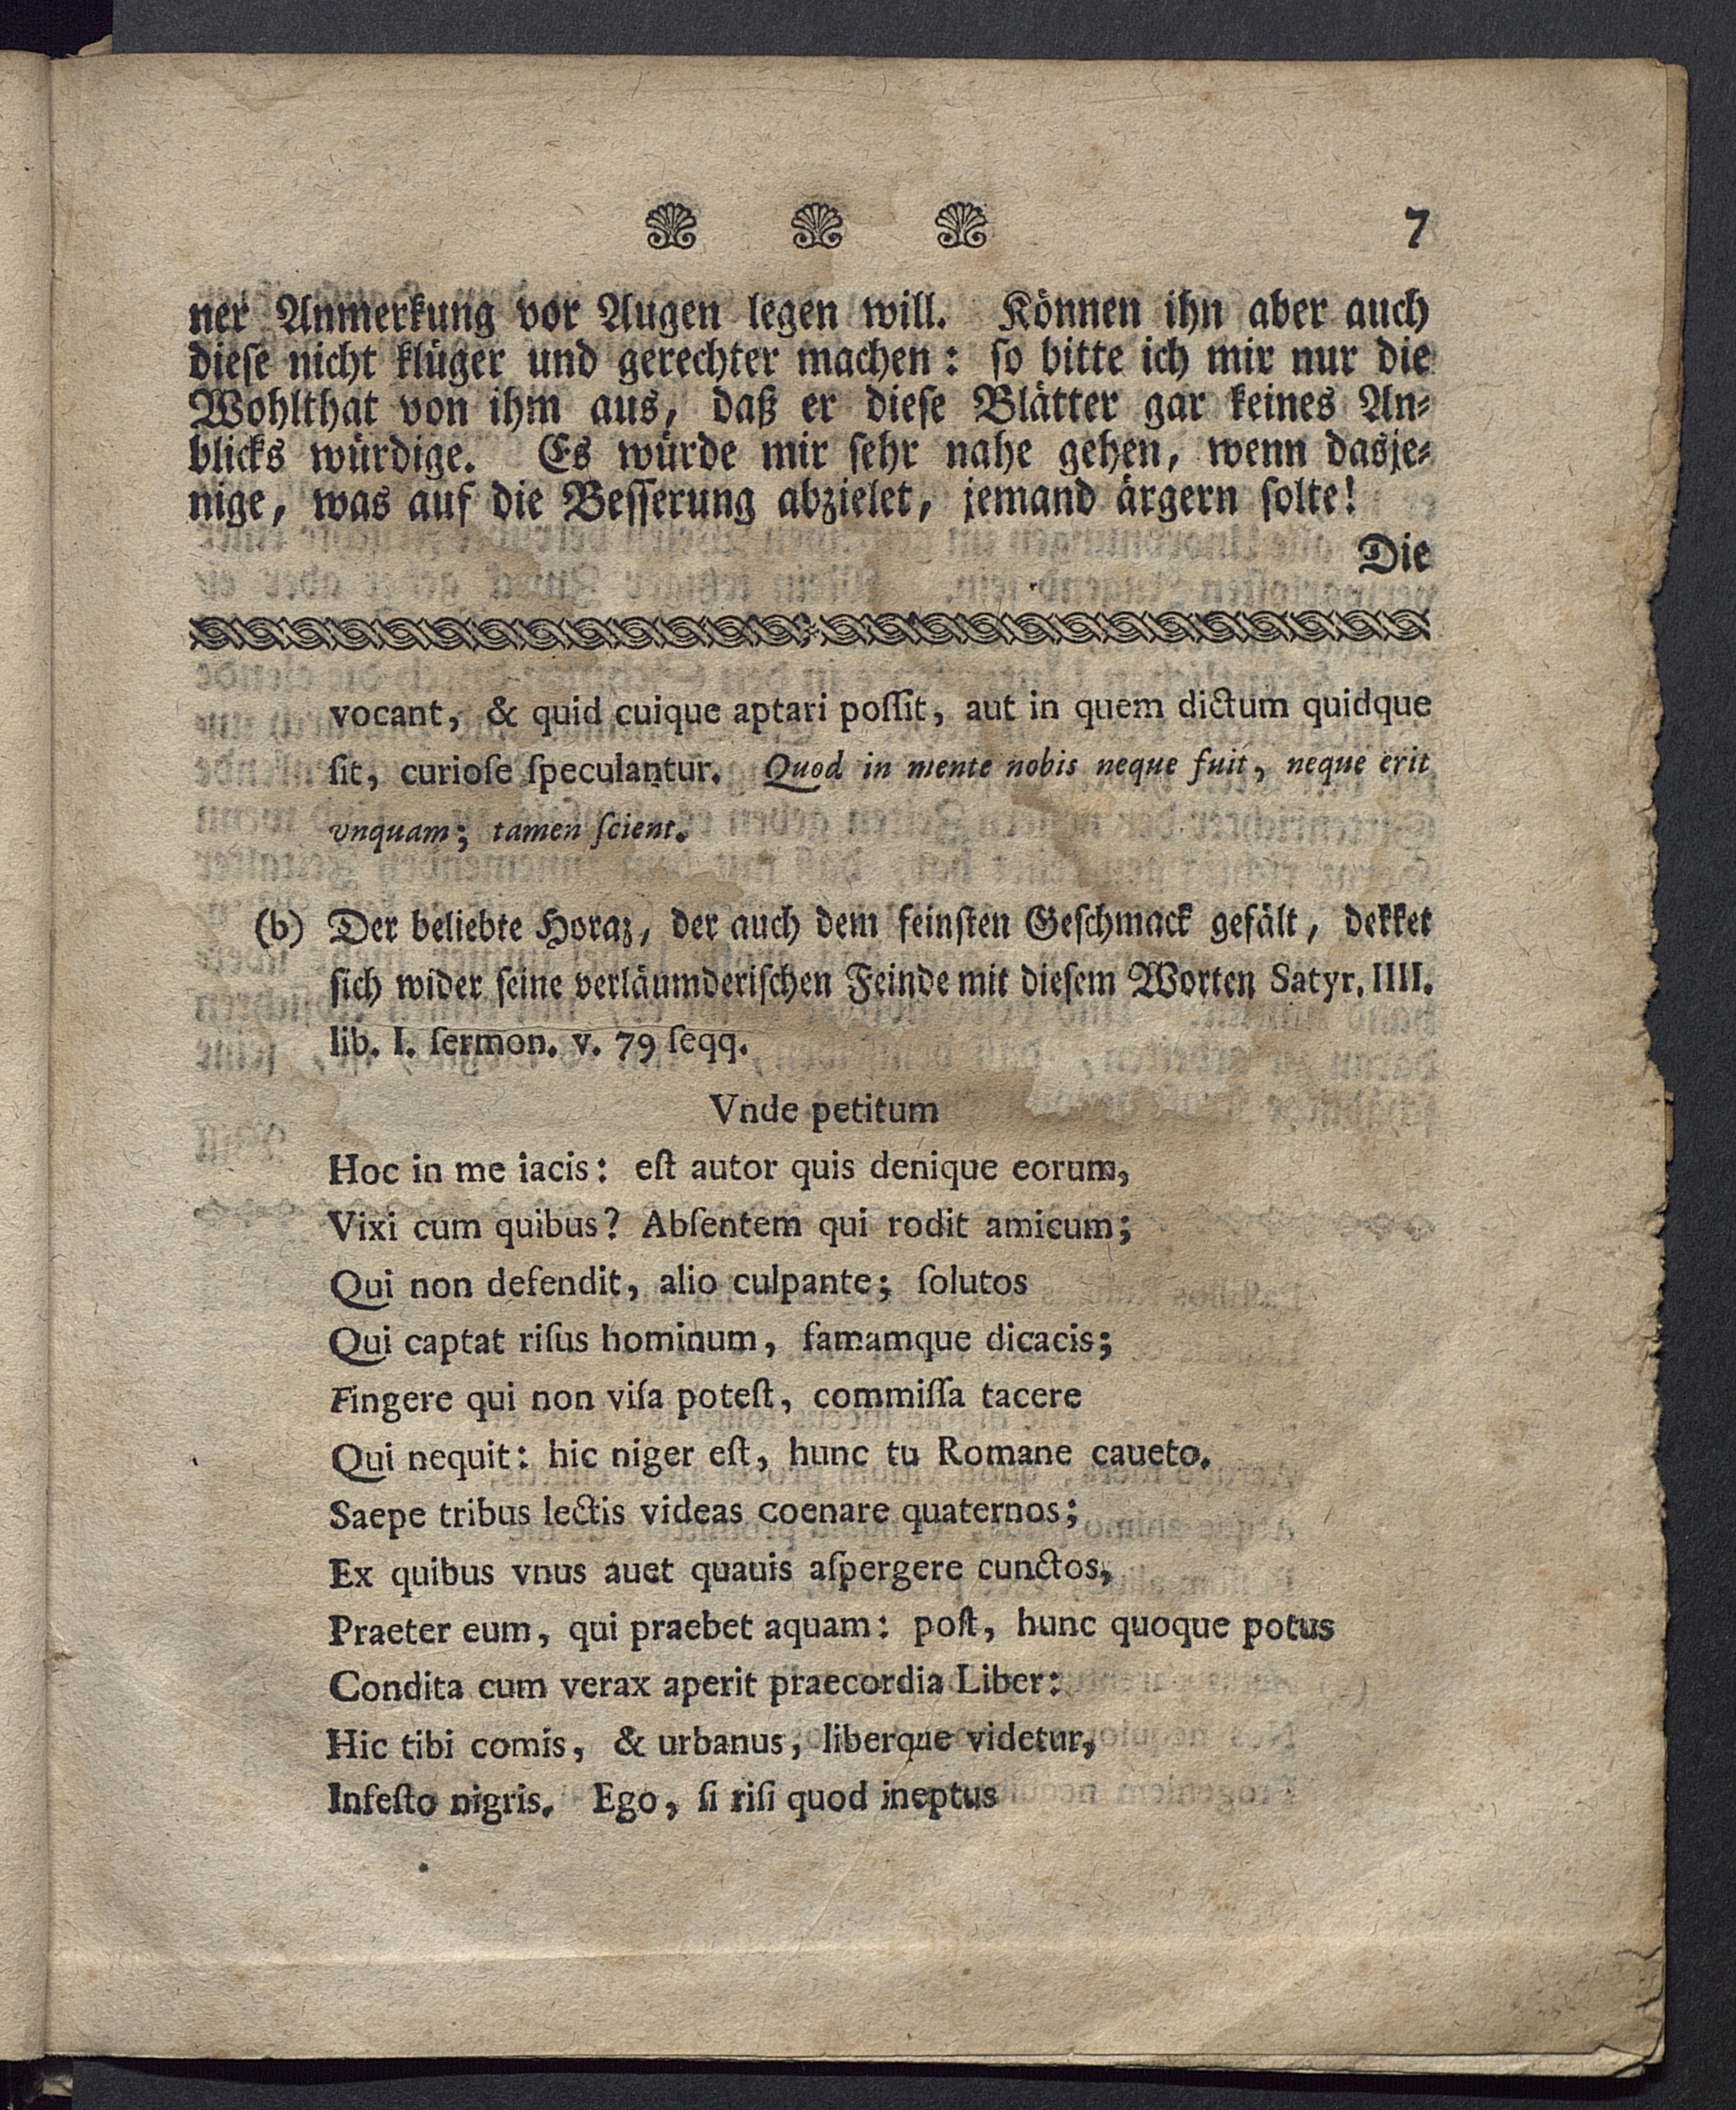 7
ner Anmerkung vor Augen legen will. Können ihn aber auch
dieſe nicht klüger und gerechter machen: ſo bitte ich mir nur die
Wohlthat von ihm aus, daß er dieſe Blätter gar keines An⸗
blicks würdige. Es würde mir ſehr nahe gehen, wenn dasje⸗
nige, was auf die Beſſerung abzielet, jemand ärgern ſolte!
Die
vocant, & quid cuique aptari poſſit, aut in quem dictum quidque
ſit, curioſe ſpeculantur. Quod in mente nobis neque fuit, neque erit
vnquam; tamen ſcient.
(b) Der beliebte Horaz, der auch dem feinſten Geſchmack gefält, dekket
ſich wider ſeine verläumderiſchen Feinde mit dieſem Worten Satyr. IIII.
lib. I. ſermon. v. 79 ſeqq.
Vnde petitum
Hoc in me iacis: eſt autor quis denique eorum,
Vixi cum quibus? Abſentem qui rodit amicum;
Qui non defendit, alio culpante; ſolutos
Qui captat riſus hominum, famamque dicacis;
Fingere qui non viſa poteſt, commiſſa tacere
Qui nequit: hic niger eſt, hunc tu Romane caueto.
Saepe tribus lectis videas coenare quaternos;
Ex quibus vnus auet quauis aſpergere cunctos,
Praeter eum, qui praebet aquam: poſt, hunc quoque potus
Condita cum verax aperit praecordia Liber:
Hic tibi comis, & urbanus, liberque videtur,
Infeſto nigris. Ego, ſi riſi quod ineptus